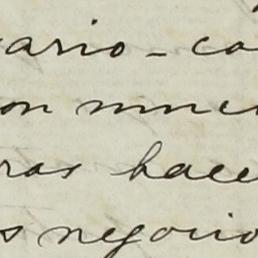 ario - co
on nnci
ras hace
s negocio